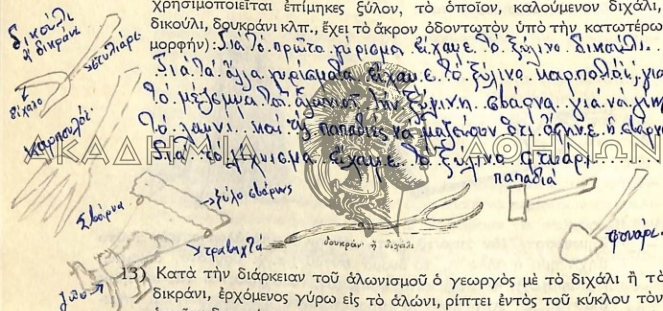 χρησιμοποιεῖται ἐπίμηκες ξύλον, τὸ ὁποῖον, καλούμενον διχάλι,
δικούλι, δουκράνι κλπ., ἔχει τὸ ἄκρον ὀδοντωτὸν ὑπὸ τὴν κατωτέρω
μορφήν): Γιά τό πρῶτο γύρισμα εἴχαμε τό ξύλινο δικούλι..
Γιά τά ἄλλα γυρίσματα εἴχαμε τό ξύλινο καρπολόϊ, γιά
τό μάζεμμα τοῦ ἁλωνιοῦ τήν ξύλινη σβάρνα γιά νά γίνη
τό λαμνί καί τίς παπαδιές νά μαζεύουν ὅτι ἄφηνε ἡ σβάρνα
Γιά τό λίχνισμα εἴχαμε τό ξύλινο φτυάρι
δικούλι
ἤ δικράνι
στυλιάρι
δίχαλο
καρπολόϊ
ΑΚΑΔΗΜΙΑ ΑΘΗΝΩΝ
παπαδιά
ξύλο σβάρνας
Σβάρνα
τραβηχτά
δουκράνι ἢ διχάλι
φτυάρι
13) Κατὰ τὴν διάρκειαν τοῦ ἁλωνισμοῦ ὁ γεωργὸς μὲ τὸ διχάλι ἢ τὸ
δικράνι, ἐρχόμενος γύρω εἰς τὸ ἁλώνι, ρίπτει ἐντὸς τοῦ κύκλου τὸν